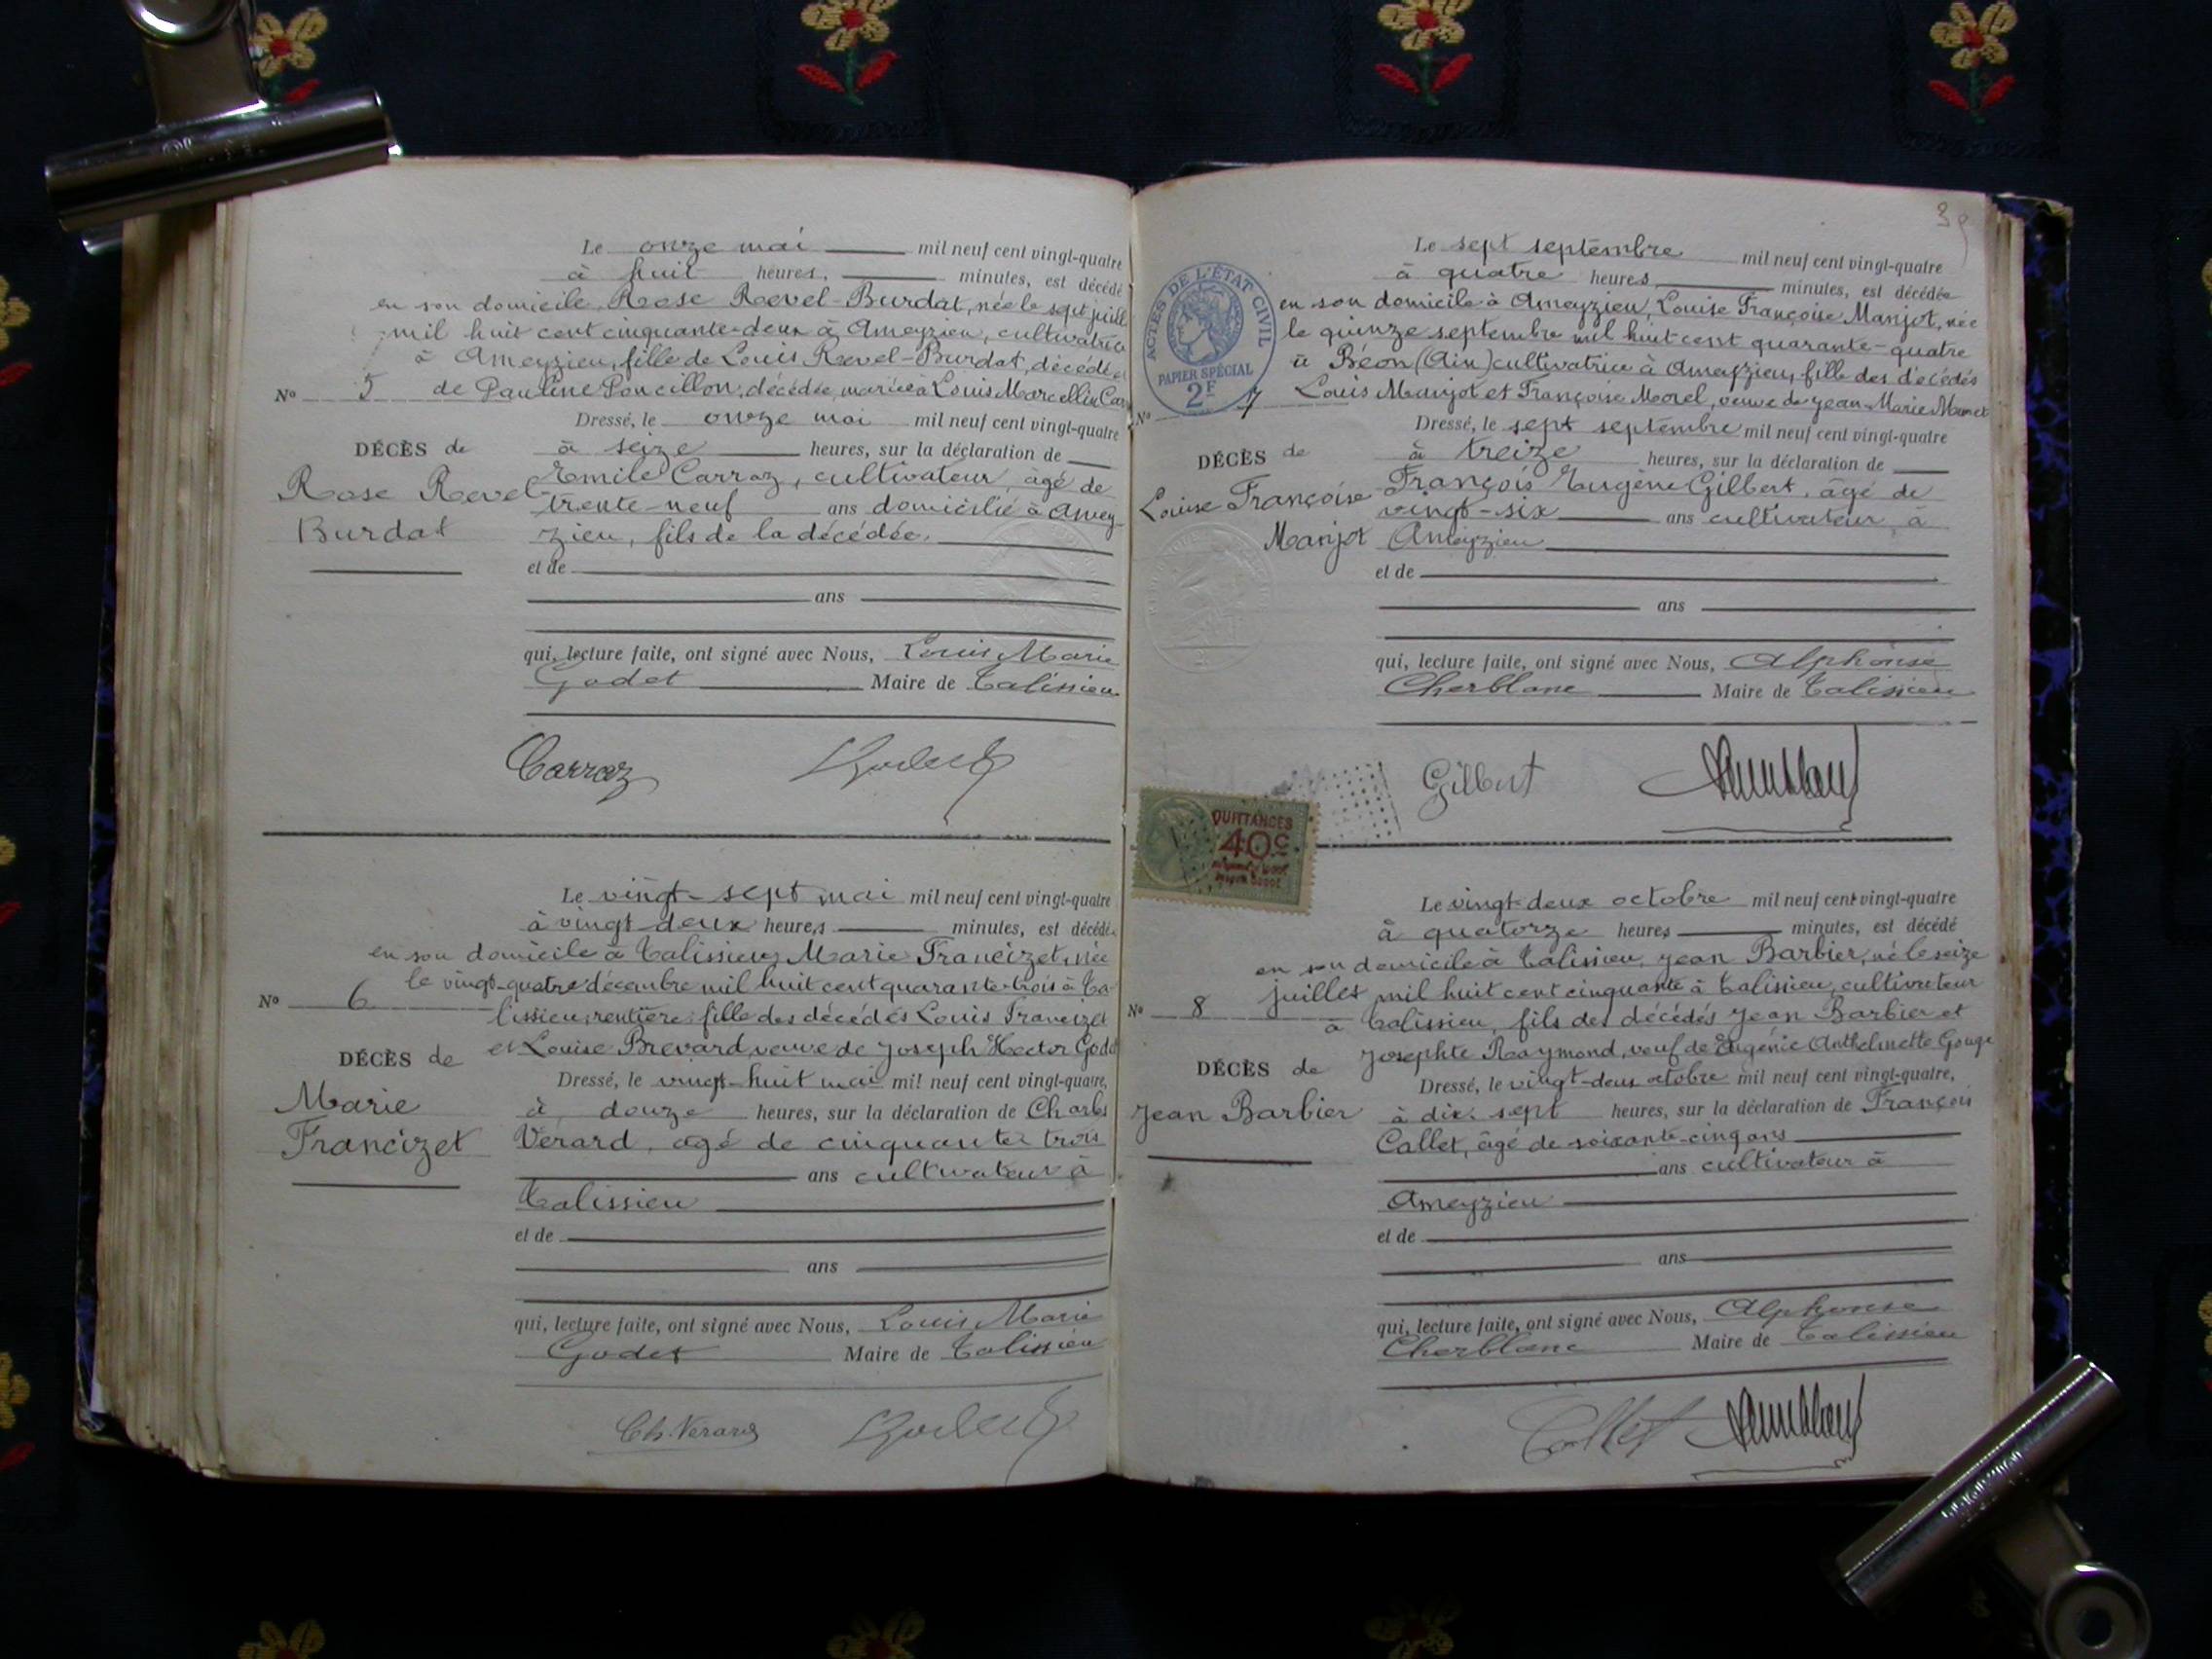 Le onze mai mil neuf cent vingt-quatre
à huit heures, minutes, est décédé
en son domicile, Rose Revel-Burdat, née le sept juill
mil huit cent cinquante-deux à Ameyzieu, cultivatrice
à Ameyzieu, fille de Louis Revel-Burdat, décédé,
No 5 de Pauline Poncillon, décédée, mariée à Louis Marcellin Car
Dressé, le onze mai mil neuf cent vingt-quatre
DÉCÈS de à seize heures, sur la déclaration de
Rose Revel- Emile Carraz, cultivateur, âgé de
trente-neuf ans domicilié à Amey-
Burdat zieu, fils de la décédée.
et de
ans
qui, lecture faite, ont signé avec Nous, Louis Marie
Godet Maire de Talissieu
Carraz Godet
Le vingt-sept mai mil neuf cent vingt-quatre
à vingt deux heures minutes, est décédée
en son domicile à Talissieu, Marie Francizet, née
le vingt-quatre décembre mil huit cent quarante-trois à Ta-
No 6 lissieu, rentière, fille des décédés Louis Francizet
et Louise Brevard, veuve de Joseph Hector Godet
DÉCÈS de Dressé, le vingt-huit mai mil neuf cent vingt-quatre,
Marie à douze heures, sur la déclaration de Charles
Francizet Vérard, agé de cinquante trois
ans cultivateur à
Talissieu
et de
ans
qui, lecture faite, ont signé avec Nous, Louis Marie
Godet Maire de Talissieu
Ch. Verard Godet
39
Le sept septembre mil neuf cent vingt-quatre
à quatre heures minutes, est décédée
en son domicile à Ameyzieu, Louise Françoise Manjot, née
le quinze septembre mil huit cent quarante-quatre
à Béon (Ain) cultivatrice à Ameyzieu, fille des décédés
No 7 Louis Manjot et Françoise Morel, veuve de Jean-Marie Mamet
ACTES DE L'ÉTAT CIVIL
PAPIER SPÉCIAL
2F
Dressé, le sept septembre mil neuf cent vingt-quatre
DÉCÈS de à treize heures, sur la déclaration de
Louise Françoise François Eugène Gilbert, âgé de
vingt-six ans cultivateur à
Manjot Ameyzieu
et de
ans
qui, lecture faite, ont signé avec Nous, Alphonse
Cherblanc Maire de Talissieu
Gilbert
QUITTANCES
40c
Le vingt-deux octobre mil neuf cent vingt-quatre
à quatorze heures minutes, est décédé
en son domicile à Talissieu, Jean Barbier, né le seize
juillet mil huit cent cinquante à Talissieu, cultivateur
No 8 à Talissieu, fils des décédés Jean Barbier et
Josephte Raymond, veuf de Eugénie Anthelmette Gouge
DÉCÈS de Dressé, le vingt-deux octobre mil neuf cent vingt-quatre,
Jean Barbier à dix-sept heures, sur la déclaration de François
Callet, âgé de soixante-cinq ans
ans cultivateur à
Ameyzieu
et de
ans
qui, lecture faite, ont signé avec Nous, Alphonse
Cherblanc Maire de Talissieu
Callet